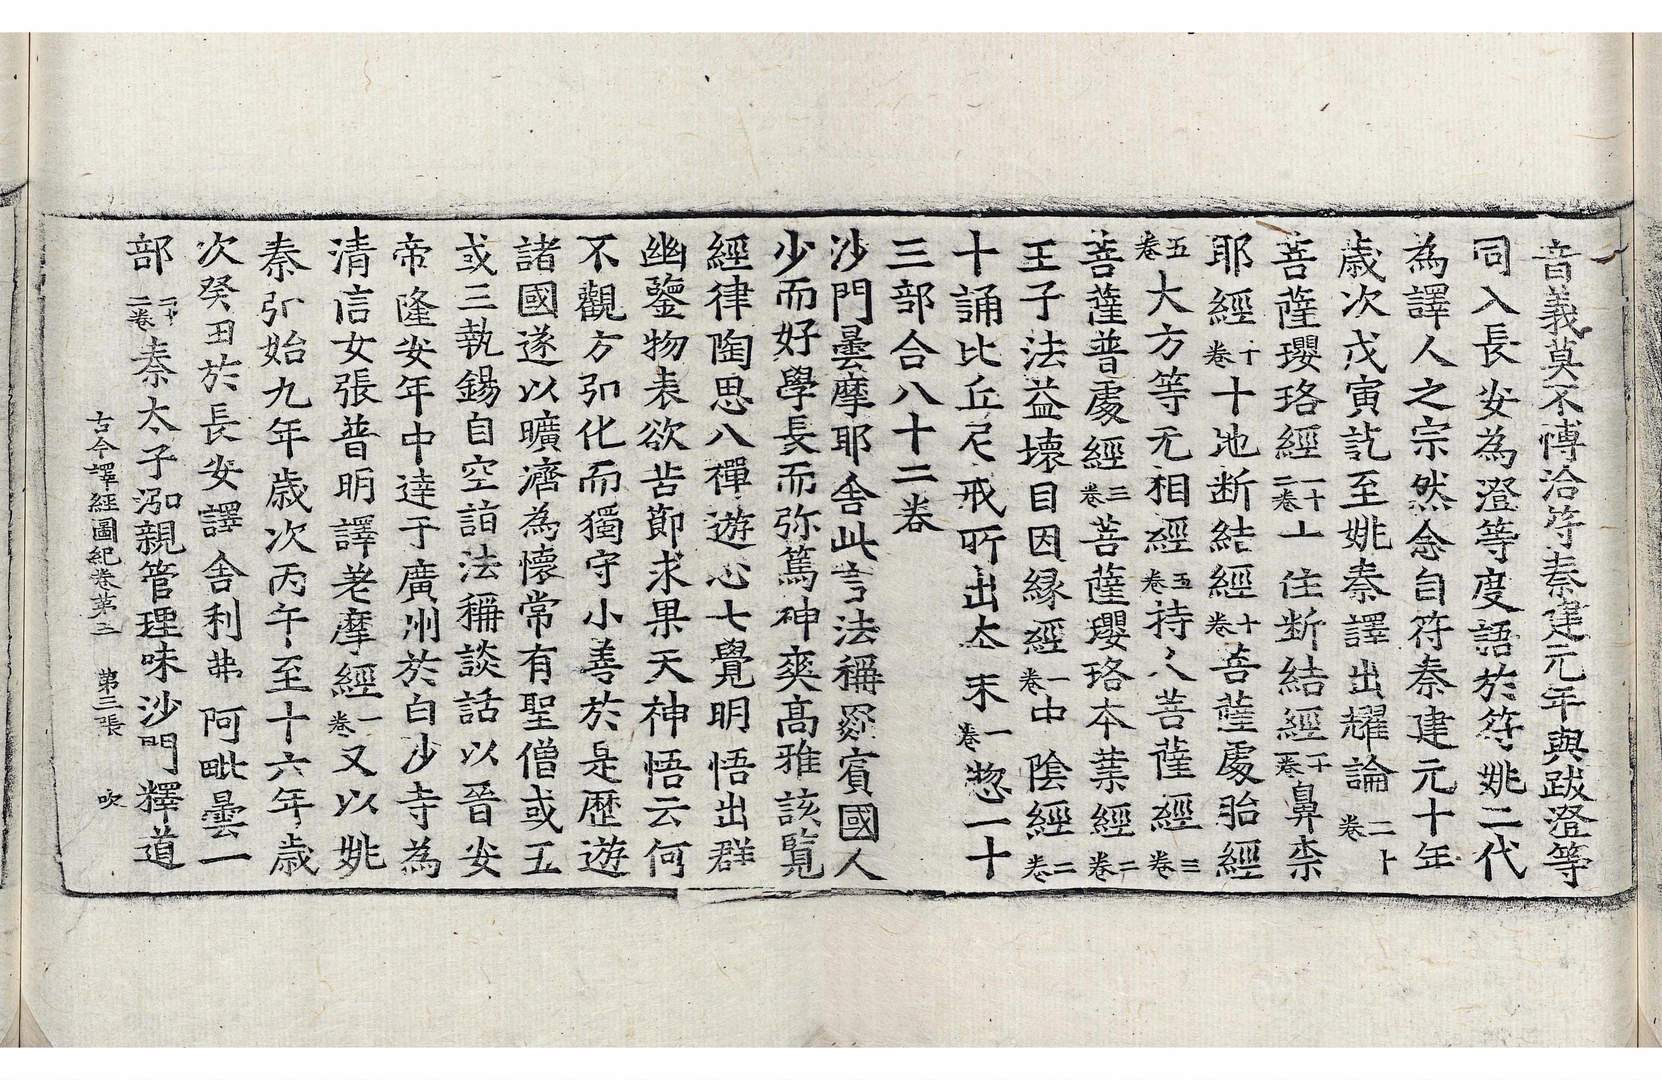 音義莫不博洽符秦建元年與跋澄等
同入長安為澄等度語於符姚二代
為譯人之宗然念自符秦建元十年
歳次戊寅訖至姚秦譯出耀論二十卷
菩薩瓔珞經十二卷十住断結經十一卷鼻柰
耶經十卷十地断結經十卷菩薩處胎經
五卷大方等无相經五卷持人菩薩經三卷
菩薩普處經三卷菩薩瓔珞本業經二卷
王子法益壊目因縁經一卷中陰經二卷
十誦比丘尼戒所出夲末一卷惣一十
三部合八十二卷
沙門曇摩耶舎此言法稱罽賓國人
少而好學長而弥篤神爽髙雅該覧
經律陶思八禪遊心七覺明悟出群
幽鑒物表欲苦節求果天神悟云何
不觀方弘化而獨守小善於是歴遊
諸國遂以曠濟為懐常有聖僧或五
或三執錫自空詣法稱談話以晉安
帝隆安年中達于廣州於白沙寺為
清信女張普明譯荖摩經一卷又以姚
秦弘始九年歳次丙午至十六年歳
次癸田於長安譯舎利弗阿毗曇一
部二十二卷秦太子泓親管理味沙門釋道
古今譯經圖紀卷苐三 第三張 吹